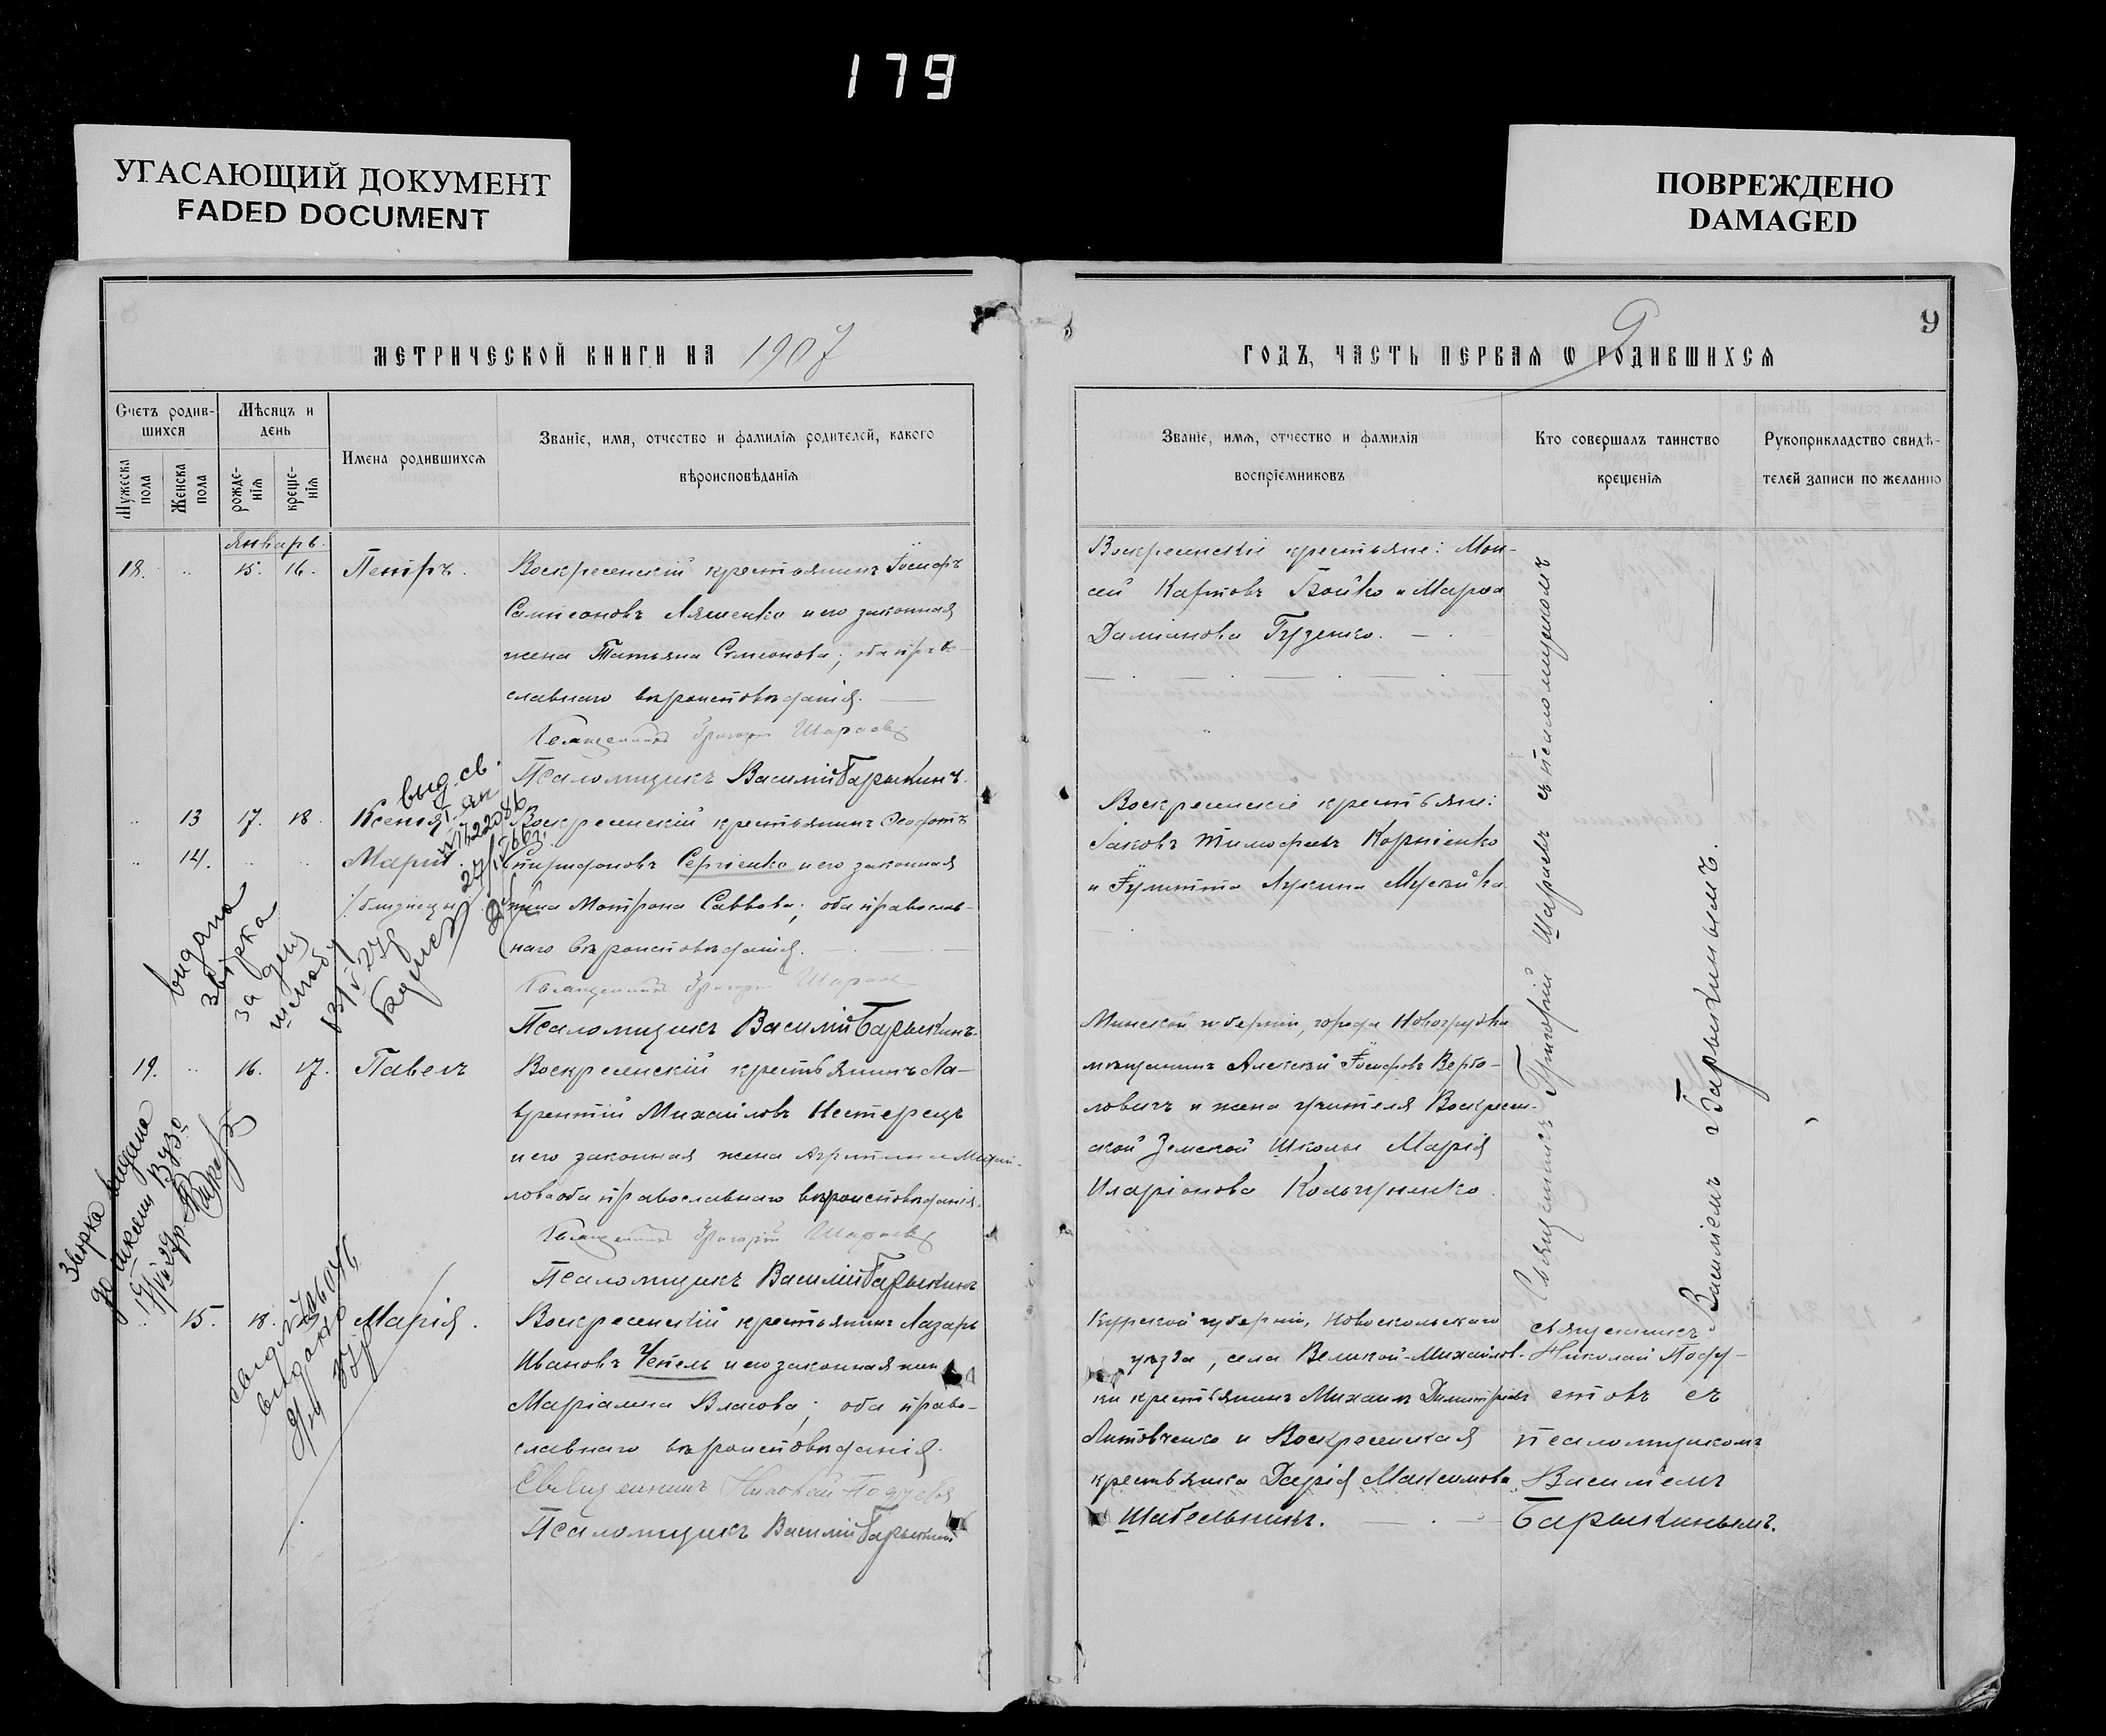 179
УГАСАЮЩИЙ ДОКУМЕНТ
FADED DOCUMENT
ПОВРЕЖДЕНО
DAMAGED
9
9
МЕТРИЧЕСКОЙ КНИГИ НА 1907
ГОДЪ, ЧАСТЬ ПЕРВАЯ Ѡ РОДИВШИХСЯ
Счетъ родив-
шихся
Мѣсяцъ и
день
Мужеска пола
Женска пола
рожде-
нія
креще-
нія
Имена родившихся
Званіе, имя, отчество и фамилія родителей, какого
вѣроисповѣданія
Званіе, имя, отчество и фамилія
воспріемниковъ
Кто совершалъ таинство
крещенія
Рукоприкладство свидѣ-
телей записи по желанію
Январь.
18. 15. 16. Петръ.
Воскресенскій крестьянинъ Іосифъ
Сампсоновъ Ляшенко и его законная
жена Татьяна Симеонова; оба право-
славнаго вѣроисповѣданія.
Священникъ Григорій Шараевъ
Псаломщикъ Василій Барыкинъ.
Воскресенскіе крестьяне: Мои-
сей Карповъ Бойко и Марѳа
Даміанова Гузенко.
13 17. 18. Ксенія
14. Марія.
/близнецы/
выд. св.
Воскресенскій крестьянинъ Ѳеофотъ
Спиридоновъ Сергіенко и его законная
жена Мотрона Саввова; оба православ-
наго вѣроисповѣданія.
Священникъ Григорій Шараевъ
Псаломщикъ Василій Барыкинъ.
Воскресенскіе крестьяне:
Іаковъ Тимоѳеевъ Корніенко
и Іулитта Лукина Мусійка
видана
звірка
за день
шлюбу
19. 16. 17. Павелъ
Воскресенскій крестьянинъ Ла-
врентій Михайловъ Нестерецъ
и его законная жена Агриппина Михай-
лова оба православнаго вѣроисповѣданія.
Священникъ Григорій Шараевъ
Псаломщикъ Василій Барыкинъ
Минской губерніи, города Новогрудка
мѣщанинъ Алексѣй Іосифовъ Вербо-
ловичъ и жена учителя Воскресен-
ской Земской Школы Марія
Иларіонова Кольчуненко.
Звірка видана
15. 18. Марія.
Воскресенскій крестьянинъ Лазарь
Ивановъ Чепель и его законная жена
Маріамна Власова; оба право-
славнаго вѣроисповѣданія.
Священникъ Николай
Псаломщикъ Василій Барыкинъ
Курской губерніи, Новоскольскаго
уѣзда, села Великой-Михайлов-
ки крестьянинъ Михаилъ Димитріевъ
Литовченко и Воскресенская
крестьянка Дарія Максимова
Шабельникъ.
Священникъ Григорій Шараевъ съ псаломщикомъ
Василіемъ Барыкинымъ.
Священникъ
Николай
съ
псаломщикомъ
Василіемъ
Барыкинымъ.